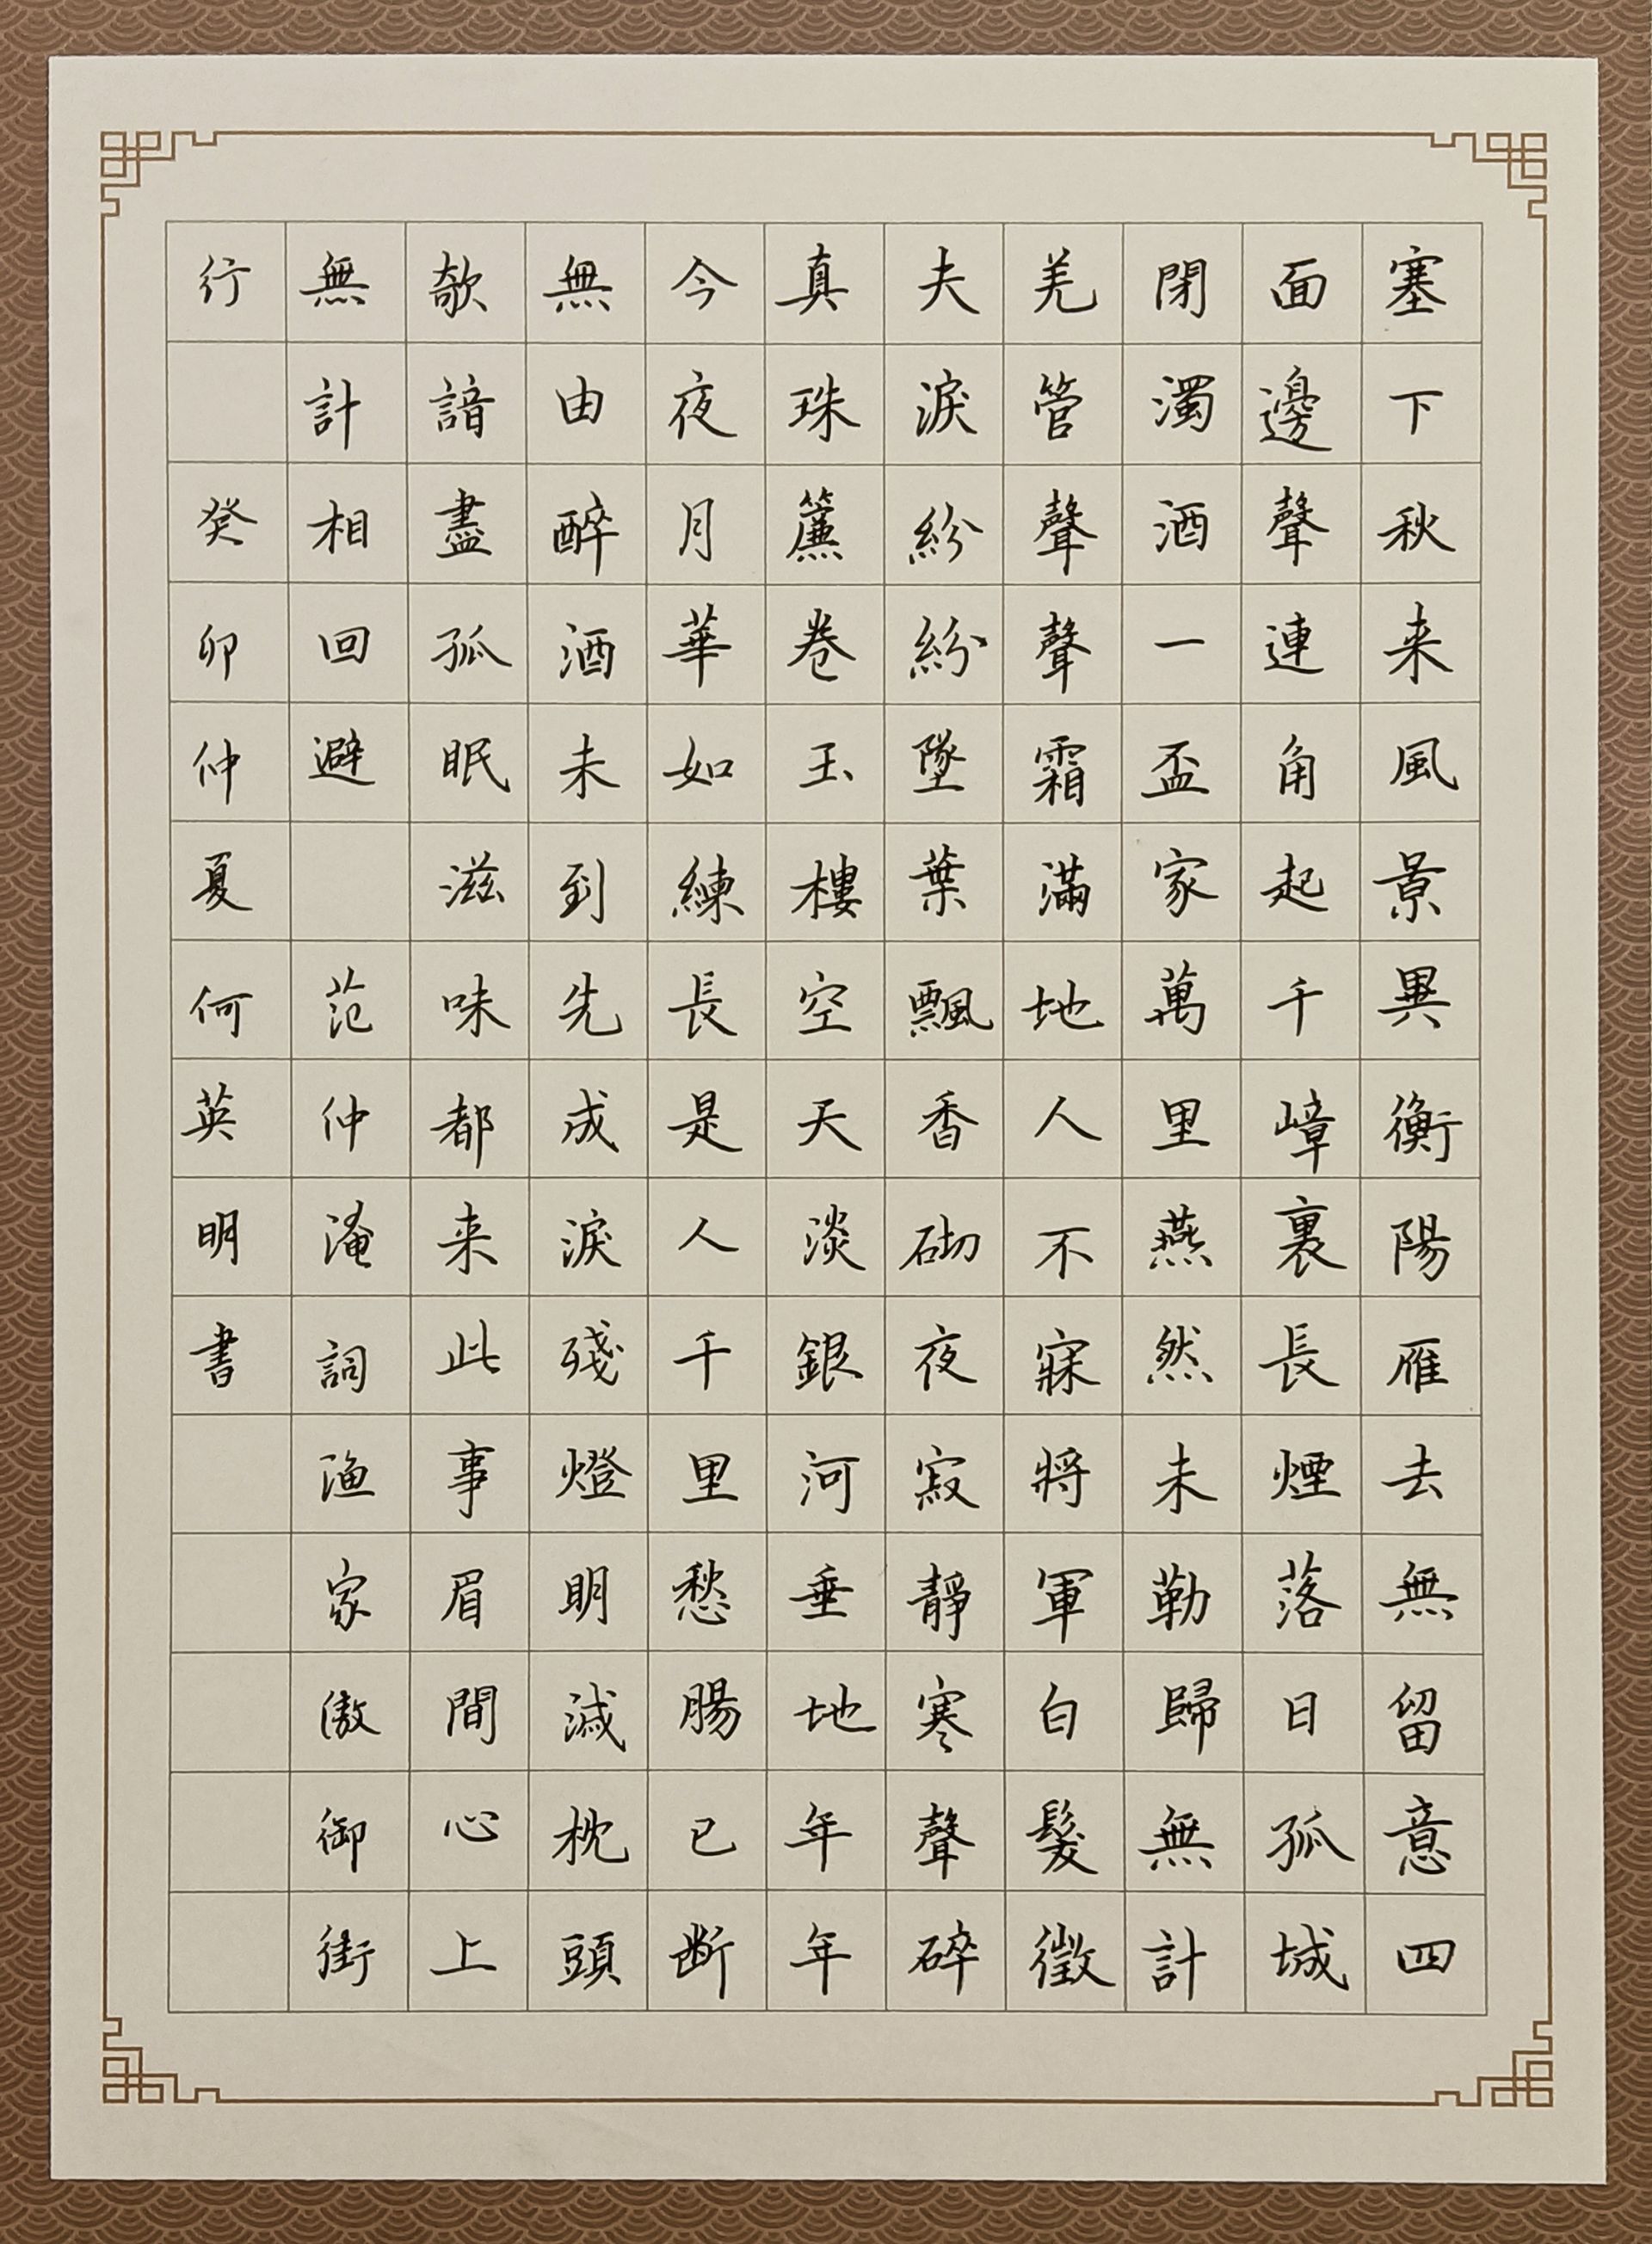 塞下秋来風景異衡陽雁去無留意四
面邊聲連角起千嶂裏長煙落日孤城
閉濁酒一盃家萬里燕然未勒歸無計
羌管聲聲霜滿地人不寐將軍白髮徵
夫淚紛紛墜葉飄香砌夜寂靜寒聲碎
真珠簾卷玉樓空天淡銀河垂地年年
今夜月華如練長是人千里愁腸已断
無由醉酒未到先成淚殘燈明滅枕頭
欹諳盡孤眠滋味都来此事眉間心上
無計相回避 范仲淹詞漁家傲御街
行 癸卯仲夏何英明書